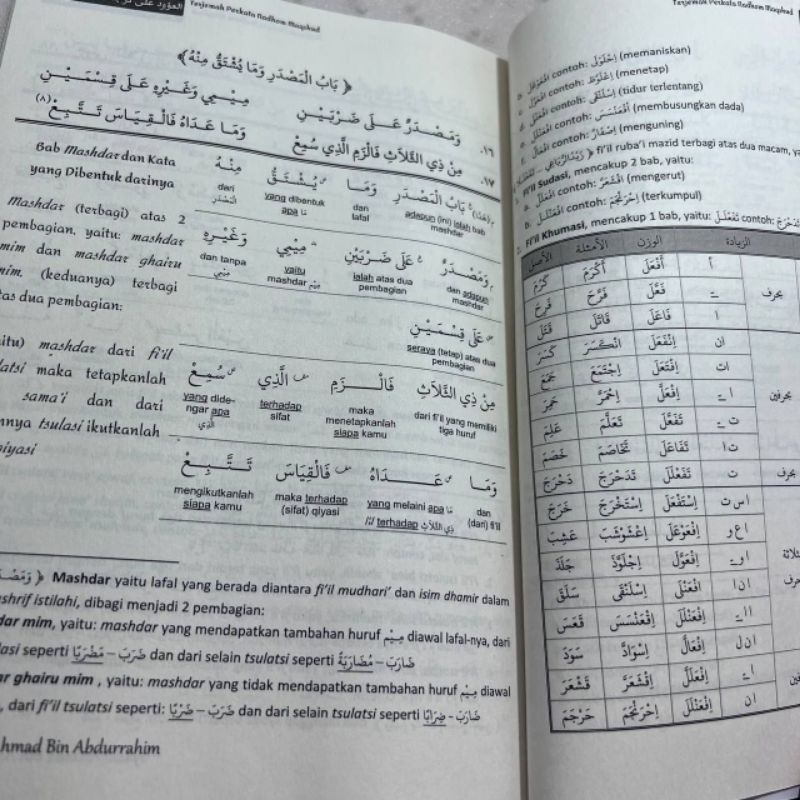 Terjemah Perkata Nadhom Maqshud
﴿ بَابُ الْمَصْدَرِ وَمَا يُشْتَقُّ مِنْهُ ﴾
١٦. وَمَصْدَرٌ عَلَى ضَرْبَيْنِ مِيْمِي وَغَيْرِهِ عَلَى قِسْمَيْنِ
١٧. مِنْ ذِي الثَّلَاثِ فَالْزَمِ الَّذِي سُمِعْ وَمَا عَدَاهُ فَالْقِيَاسَ تَتَّبِعْ (٨)
Bab Mashdar dan Kata
yang Dibentuk darinya
بَابُ الْمَصْدَرِ وَمَا يُشْتَقُّ مِنْهُ
adapun (ini) ialah bab mashdar
dan lafal
yang dibentuk apa مَا
dari الْمَصْدَر
Mashdar (terbagi) atas 2
pembagian, yaitu: mashdar
mim dan mashdar ghairu
mim. (keduanya) terbagi
atas dua pembagian:
وَمَصْدَرٌ عَلَى ضَرْبَيْنِ مِيْمِي وَغَيْرِهِ
dan adapun mashdar
ialah atas dua pembagian
yaitu mashdar مِيْم
dan tanpa مِيْمِي
عَلَى قِسْمَيْنِ
seraya (tetap) atas dua pembagian
mashdar dari fi'il
maka tetapkanlah
sama'i dan dari
tsulasi ikutkanlah
qiyasi
مِنْ ذِي الثَّلَاثِ فَالْزَمِ الَّذِي سُمِعْ
dari fi'il yang memiliki tiga huruf
maka menetapkanlah siapa kamu
terhadap sifat
yang dide-ngar apa الَّذِي
وَمَا عَدَاهُ فَالْقِيَاسَ تَتَّبِعْ
dan (dari) fi'il
yang melaini apa مَا // terhadap ذِي الثَّلَاثِ
maka terhadap (sifat) qiyasi
mengikutkanlah siapa kamu
Mashdar yaitu lafal yang berada diantara fi'il mudhari' dan isim dhamir dalam
tashrif istilahi, dibagi menjadi 2 pembagian:
mim, yaitu: mashdar yang mendapatkan tambahan huruf مِيْم diawal lafal-nya, dari
seperti ضَرَبَ – مَضْرَبًا dan dari selain tsulatsi seperti ضَارَبَ – مُضَارَبَةً
ghairu mim , yaitu: mashdar yang tidak mendapatkan tambahan huruf مِيْم diawal
, dari fi'il tsulatsi seperti: ضَرَبَ – ضَرْبًا dan dari selain tsulatsi seperti ضَارَبَ - ضِرَابًا
Ahmad Bin Abdurrahim
Terjemah Perkata Nadhom Maqshud
contoh: اِحْلَوْلَى (memaniskan)
contoh: (menetap)
contoh: اِسْلَنْقَى (tidur terlentang)
contoh: اِقْعَنْسَسَ (membusungkan dada)
contoh: اِصْفَارَّ (menguning)
fi'il ruba'i mazid terbagi atas dua macam,
Fi'il Sudasi, mencakup 2 bab, yaitu:
a. اِفْعَلَلَّ contoh: اِقْشَعَرَّ (mengerut)
b. اِفْعَنْلَلَ contoh: اِحْرَنْجَمَ (terkumpul)
Fi'il Khumasi, mencakup 1 bab, yaitu: تَفَعْلَلَ contoh: تَدَحْرَجَ
الزيادة الوزن الأمثلة الأصل
بحرف أ أَفْعَلَ أَكْرَمَ كَرُمَ
فَعَّلَ فَرَّحَ فَرِحَ
ا فَاعَلَ قَاتَلَ قَتَلَ
بحرفين ان اِنْفَعَلَ اِنْكَسَرَ كَسَرَ
ات اِفْتَعَلَ اِجْتَمَعَ جَمَعَ
ا ــ اِفْعَلَّ اِحْمَرَّ حَمِرَ
ت ــ تَفَعَّلَ تَعَلَّمَ عَلِمَ
ت ا تَفَاعَلَ تَخَاصَمَ خَصَمَ
بحرف ت تَفَعْلَلَ تَدَحْرَجَ دَحْرَجَ
ا س ت اِسْتَفْعَلَ اِسْتَخْرَجَ خَرَجَ
ا ع و اِفْعَوْعَلَ اِعْشَوْشَبَ عَشِبَ
ا و ــ اِفْعَوَّلَ اِجْلَوَّذَ جَلَذَ
ا ن ا اِفْعَنْلَى اِسْلَنْقَى سَلَقَ
اِفْعَنْلَلَ اِقْعَنْسَسَ قَعَسَ
اِفْعَالَّ اِسْوَادَّ سَوِدَ
ا ــ اِفْعَلَلَّ اِقْشَعَرَّ قَشْعَرَ
ا ن اِفْعَنْلَلَ اِحْرَنْجَمَ حَرْجَمَ